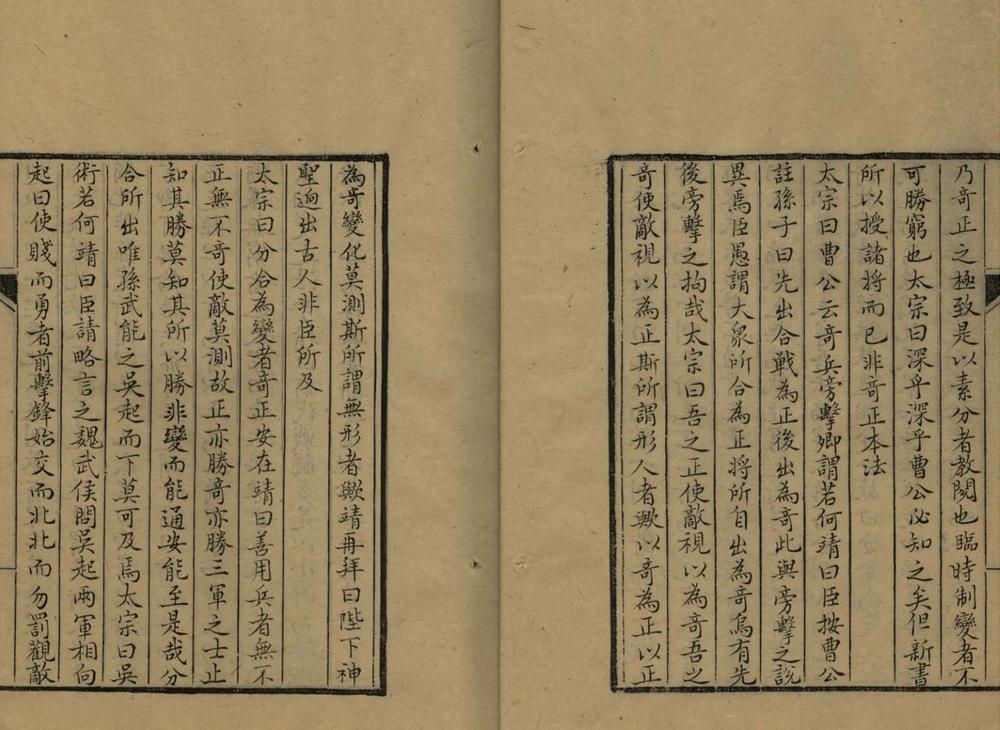 乃奇正之極致是以素分者教閱也臨時制變者不
可勝窮也太宗曰深乎深乎曹公必知之矣但新書
所以授諸將而已非奇正本法
太宗曰曹公云奇兵旁擊卿謂若何靖曰臣按曹公
註孫子曰先出合戰為正後出為奇此與旁擊之說
異焉臣愚謂大衆所合為正將所自出為奇烏有先
後旁擊之拘哉太宗曰吾之正使敵視以為奇吾之
奇使敵視以為正斯所謂形人者歟以奇為正以正
為奇變化莫測斯所謂無形者歟靖再拜曰陛下神
聖逈出古人非臣所及
太宗曰分合為變者奇正安在靖曰善用兵者無不
正無不奇使敵莫測故正亦勝奇亦勝三軍之士止
知其勝莫知其所以勝非變而能通安能至是哉分
合所出唯孫武能之吳起而下莫可及焉太宗曰吳
術若何靖曰臣請略言之魏武侯問吳起兩軍相向
起曰使賤而勇者前擊鋒始交而北北而勿罰觀敵